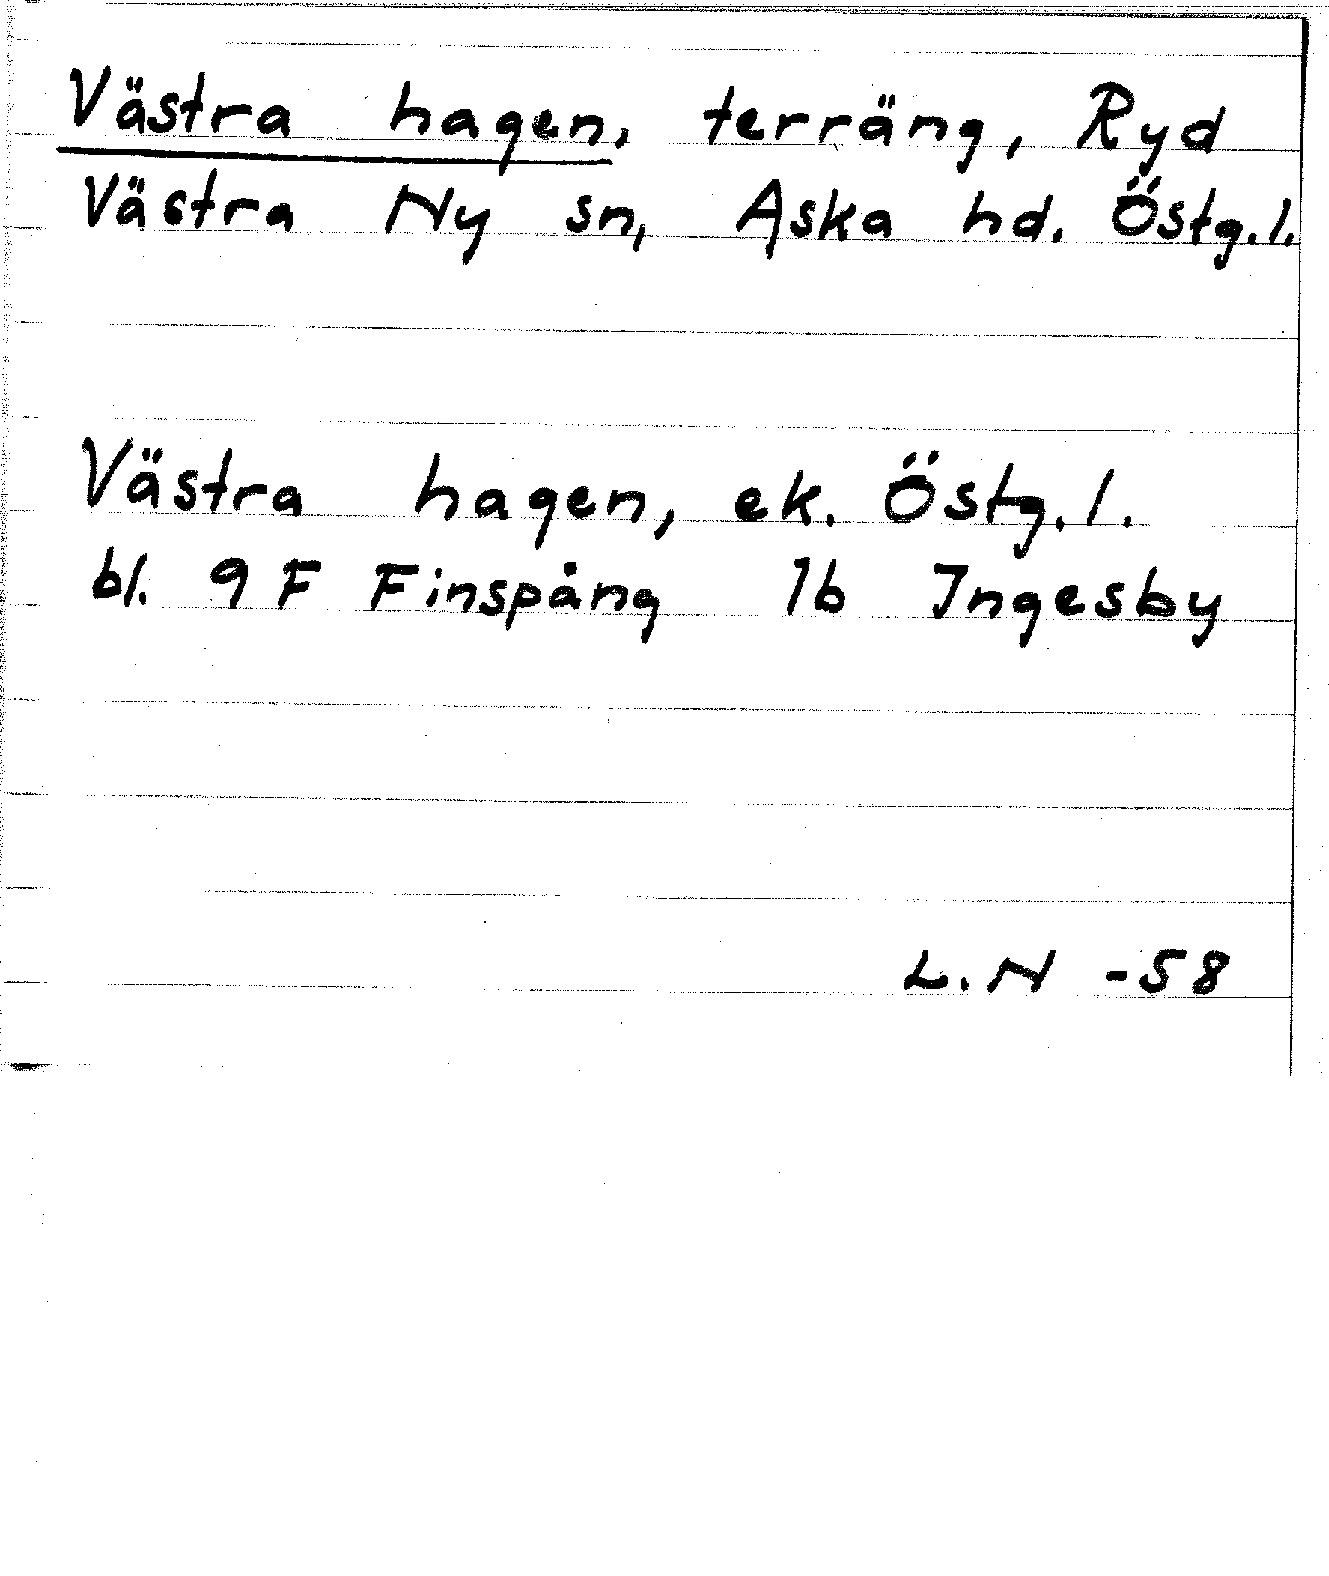 Västra hagen, terräng, Ryd
Västra Ny sn, Aska hd. Östg.l.
Västra hagen, ek. Östg.l.
bl. 9F Finspång 1b Ingesby
L.N -58